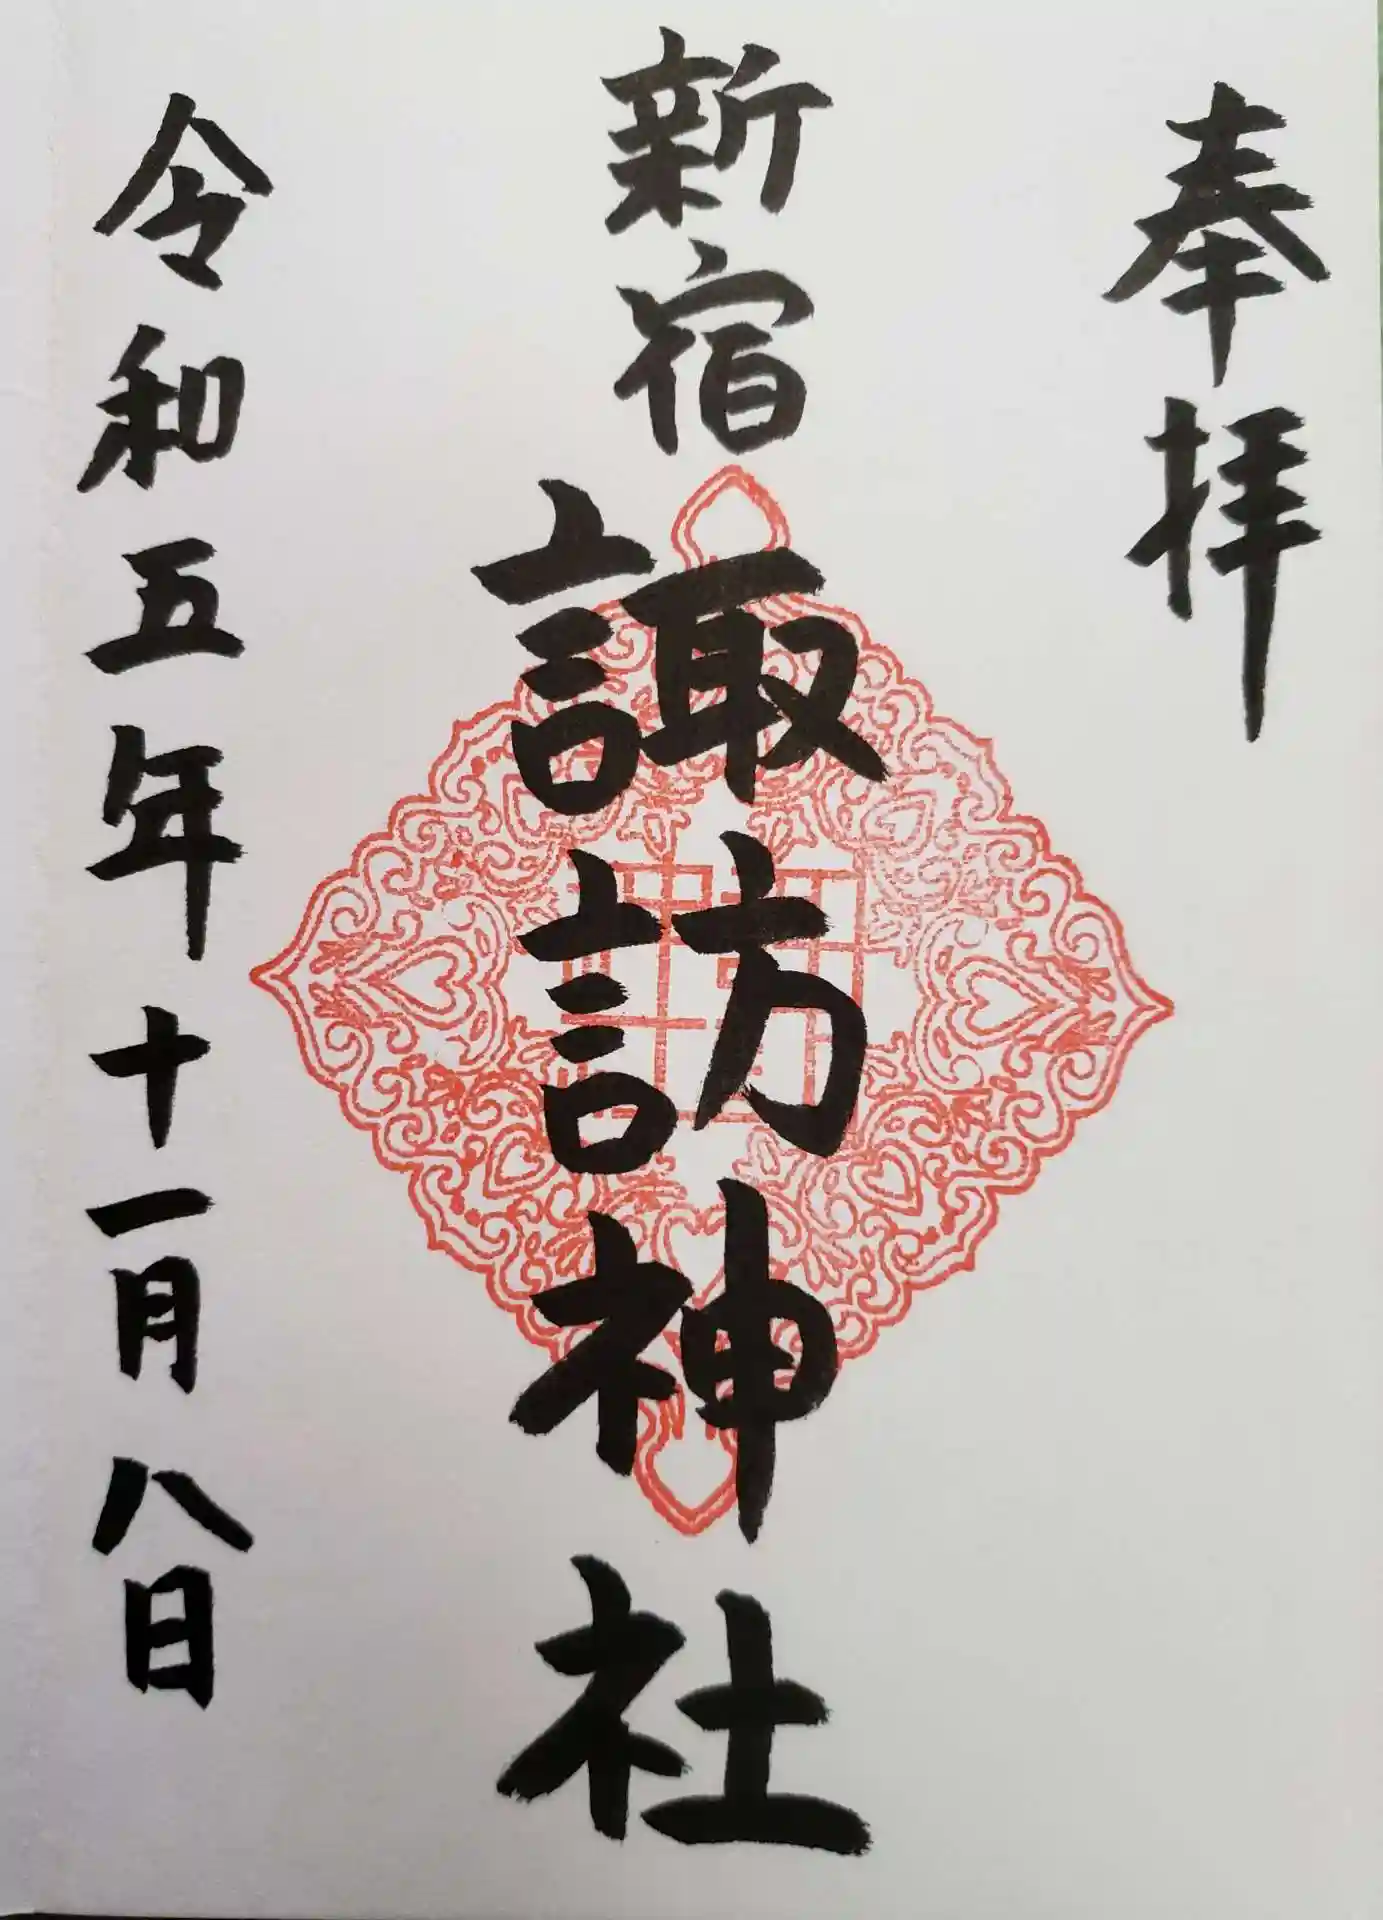 奉拝
新宿
諏訪神社
令和五年十一月八日